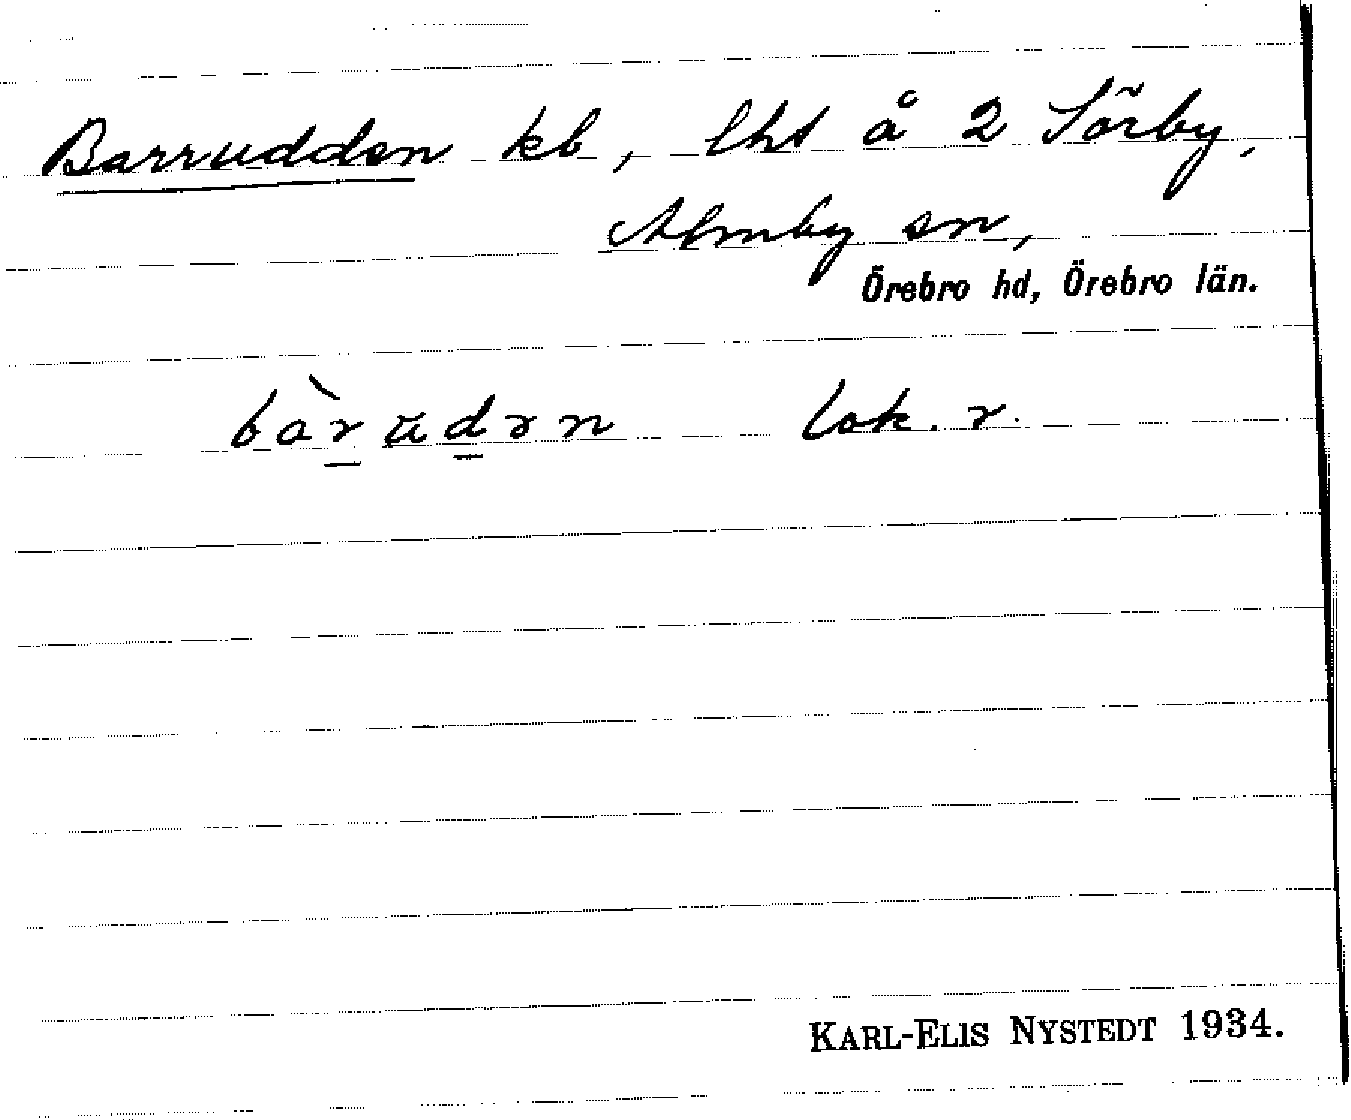 Barrudden kb, lht å 2 Sörby,
Almby sn,
Örebro hd, Örebro län.
bàr̲ud̲ən lok. r.
KARL-ELIS NYSTEDT 1934.